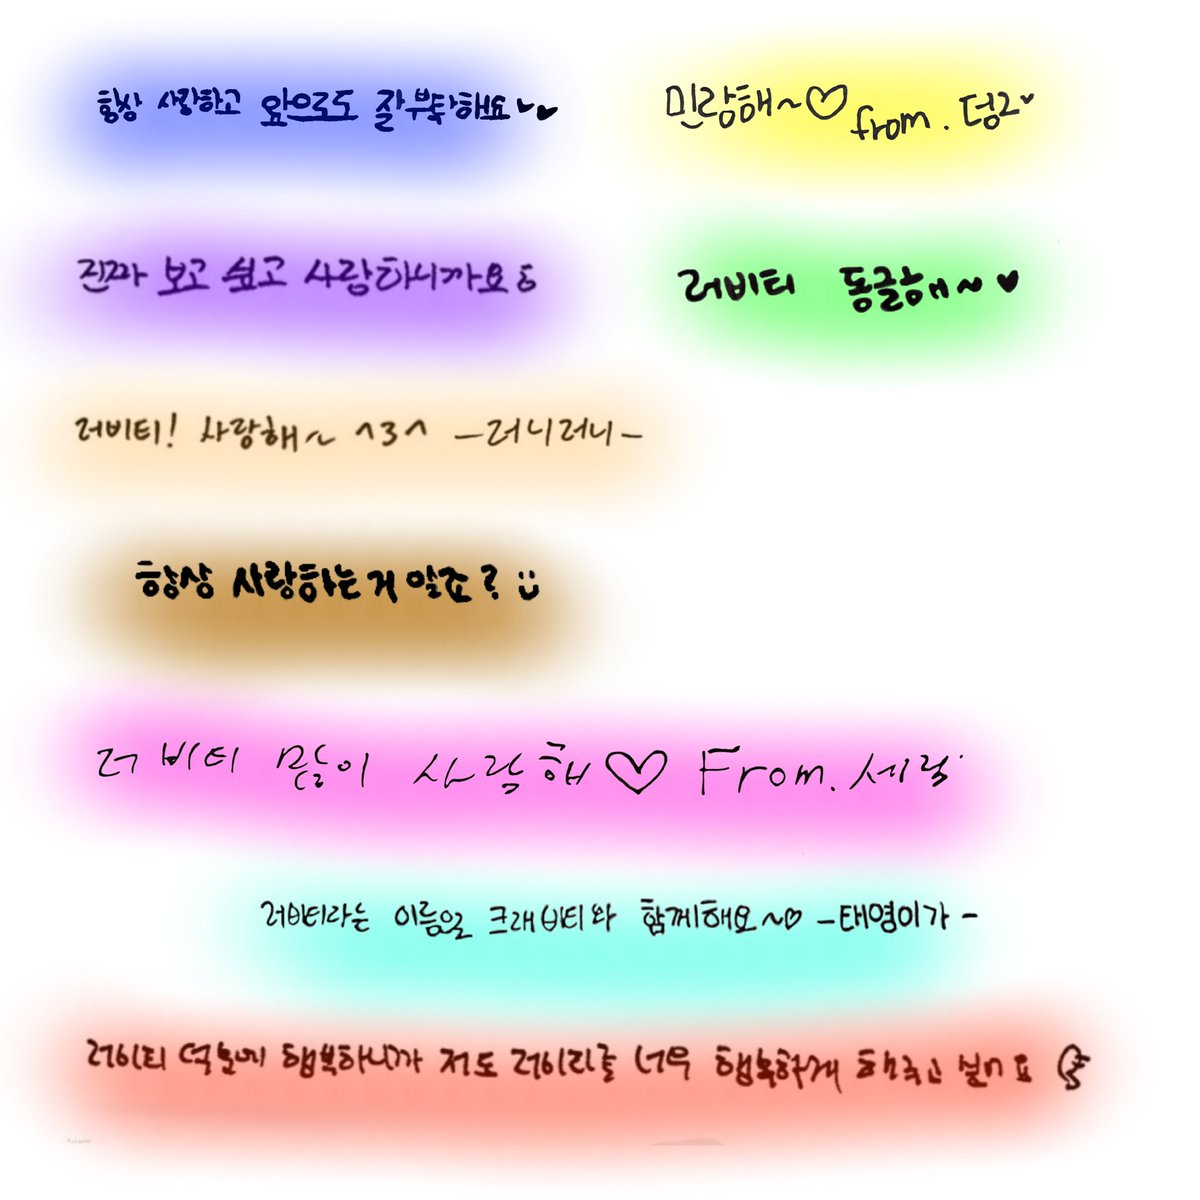 항상 사랑하고 앞으로도 잘부탁해요
민랑해~♡ from. 덩2
진짜 보고 싶고 사랑하니까요
러비티 동글해~♥
러비티! 사랑해~ ^3^ -러니러니-
항상 사랑하는거 알죠? :)
러비티 많이 사랑해♡ From. 세림
러비티라는 이름으로 크래비티와 함께해요~♡ -태영이가-
러비티 덕분에 행복하니까 저도 러비티를 너무 행복하게 해주고 싶어요